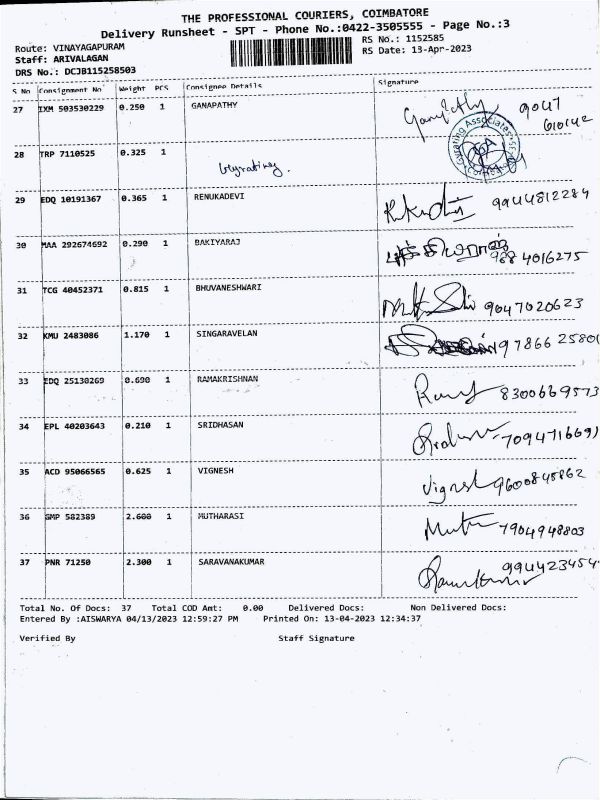 THE PROFESSIONAL COURIERS, COIMBATORE
Delivery Runsheet - SPT - Phone No.:0422-3505555 - Page No.:3
Route: VINAYAGAPURAM
RS No.: 1152585
Staff: ARIVALAGAN
RS Date: 13-Apr-2023
DRS No.: DCJB115258503
S No Consignment No Weight PCS Consignee Details Signature
27 IXM 503530229 0.250 1 GANAPATHY 9047
610142
28 TRP 7110525 0.325 1
29 EDQ 10191367 0.365 1 RENUKADEVI 9944812284
30 MAA 292674692 0.290 1 BAKIYARAJ 4016275
31 TCG 40452371 0.815 1 BHUVANESHWARI 9047020623
32 KMU 2483086 1.170 1 SINGARAVELAN 97866 25801
33 EDQ 25130269 0.690 1 RAMAKRISHNAN 8300669573
34 EPL 40203643 0.210 1 SRIDHASAN 7094716691
35 ACD 95066565 0.625 1 VIGNESH Vignesh 9600845862
36 GMP 582389 2.600 1 MUTHARASI 7904948803
37 PNR 71250 2.300 1 SARAVANAKUMAR 994423454
Total No. Of Docs: 37 Total COD Amt: 0.00 Delivered Docs: Non Delivered Docs:
Entered By :AISWARYA 04/13/2023 12:59:27 PM Printed On: 13-04-2023 12:34:37
Verified By Staff Signature